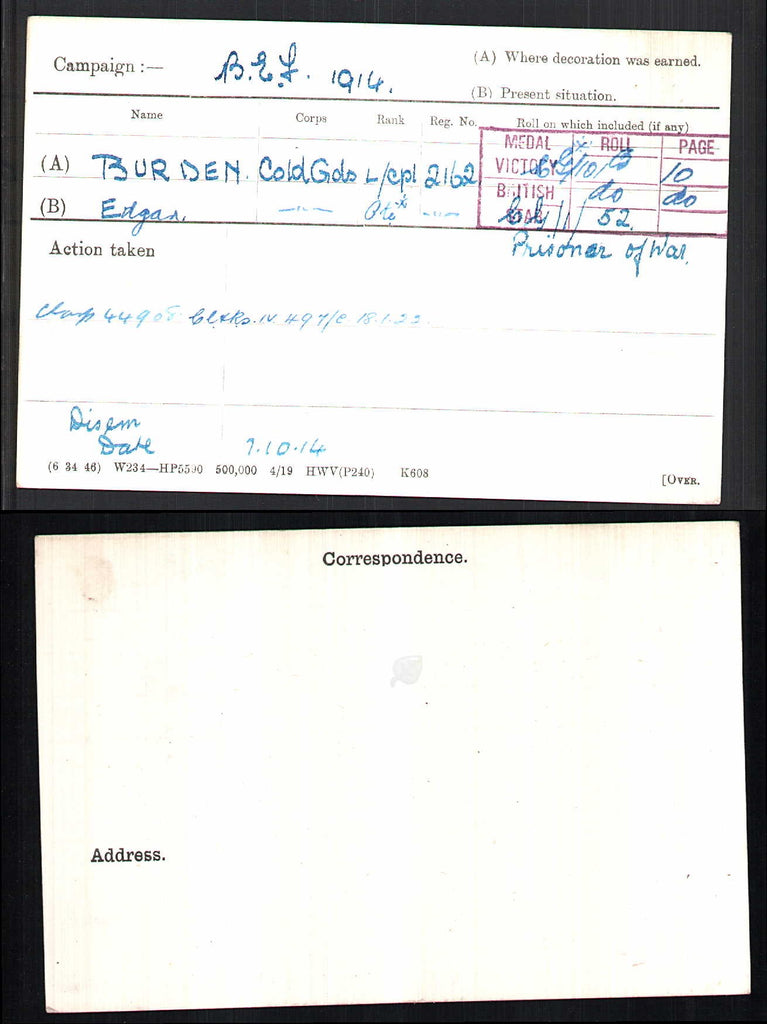 Campaign :— B.E.F. 1914. (A) Where decoration was earned.
(B) Present situation.
Name Corps Rank Reg. No. Roll on which included (if any)
MEDAL ROLL PAGE
(A) BURDEN. Cold Gds L/cpl 2162 VICTORY 10
BRITISH do do
(B) Edgar. —"— Pte x —"— STAR 52.
Action taken Prisoner of War.
Clasp IV 497/C 18.1.23.
Disem
Date 7.10.14
(6 34 46) W234—HP5590 500,000 4/19 HWV(P240) K608 [OVER.
Correspondence.
Address.